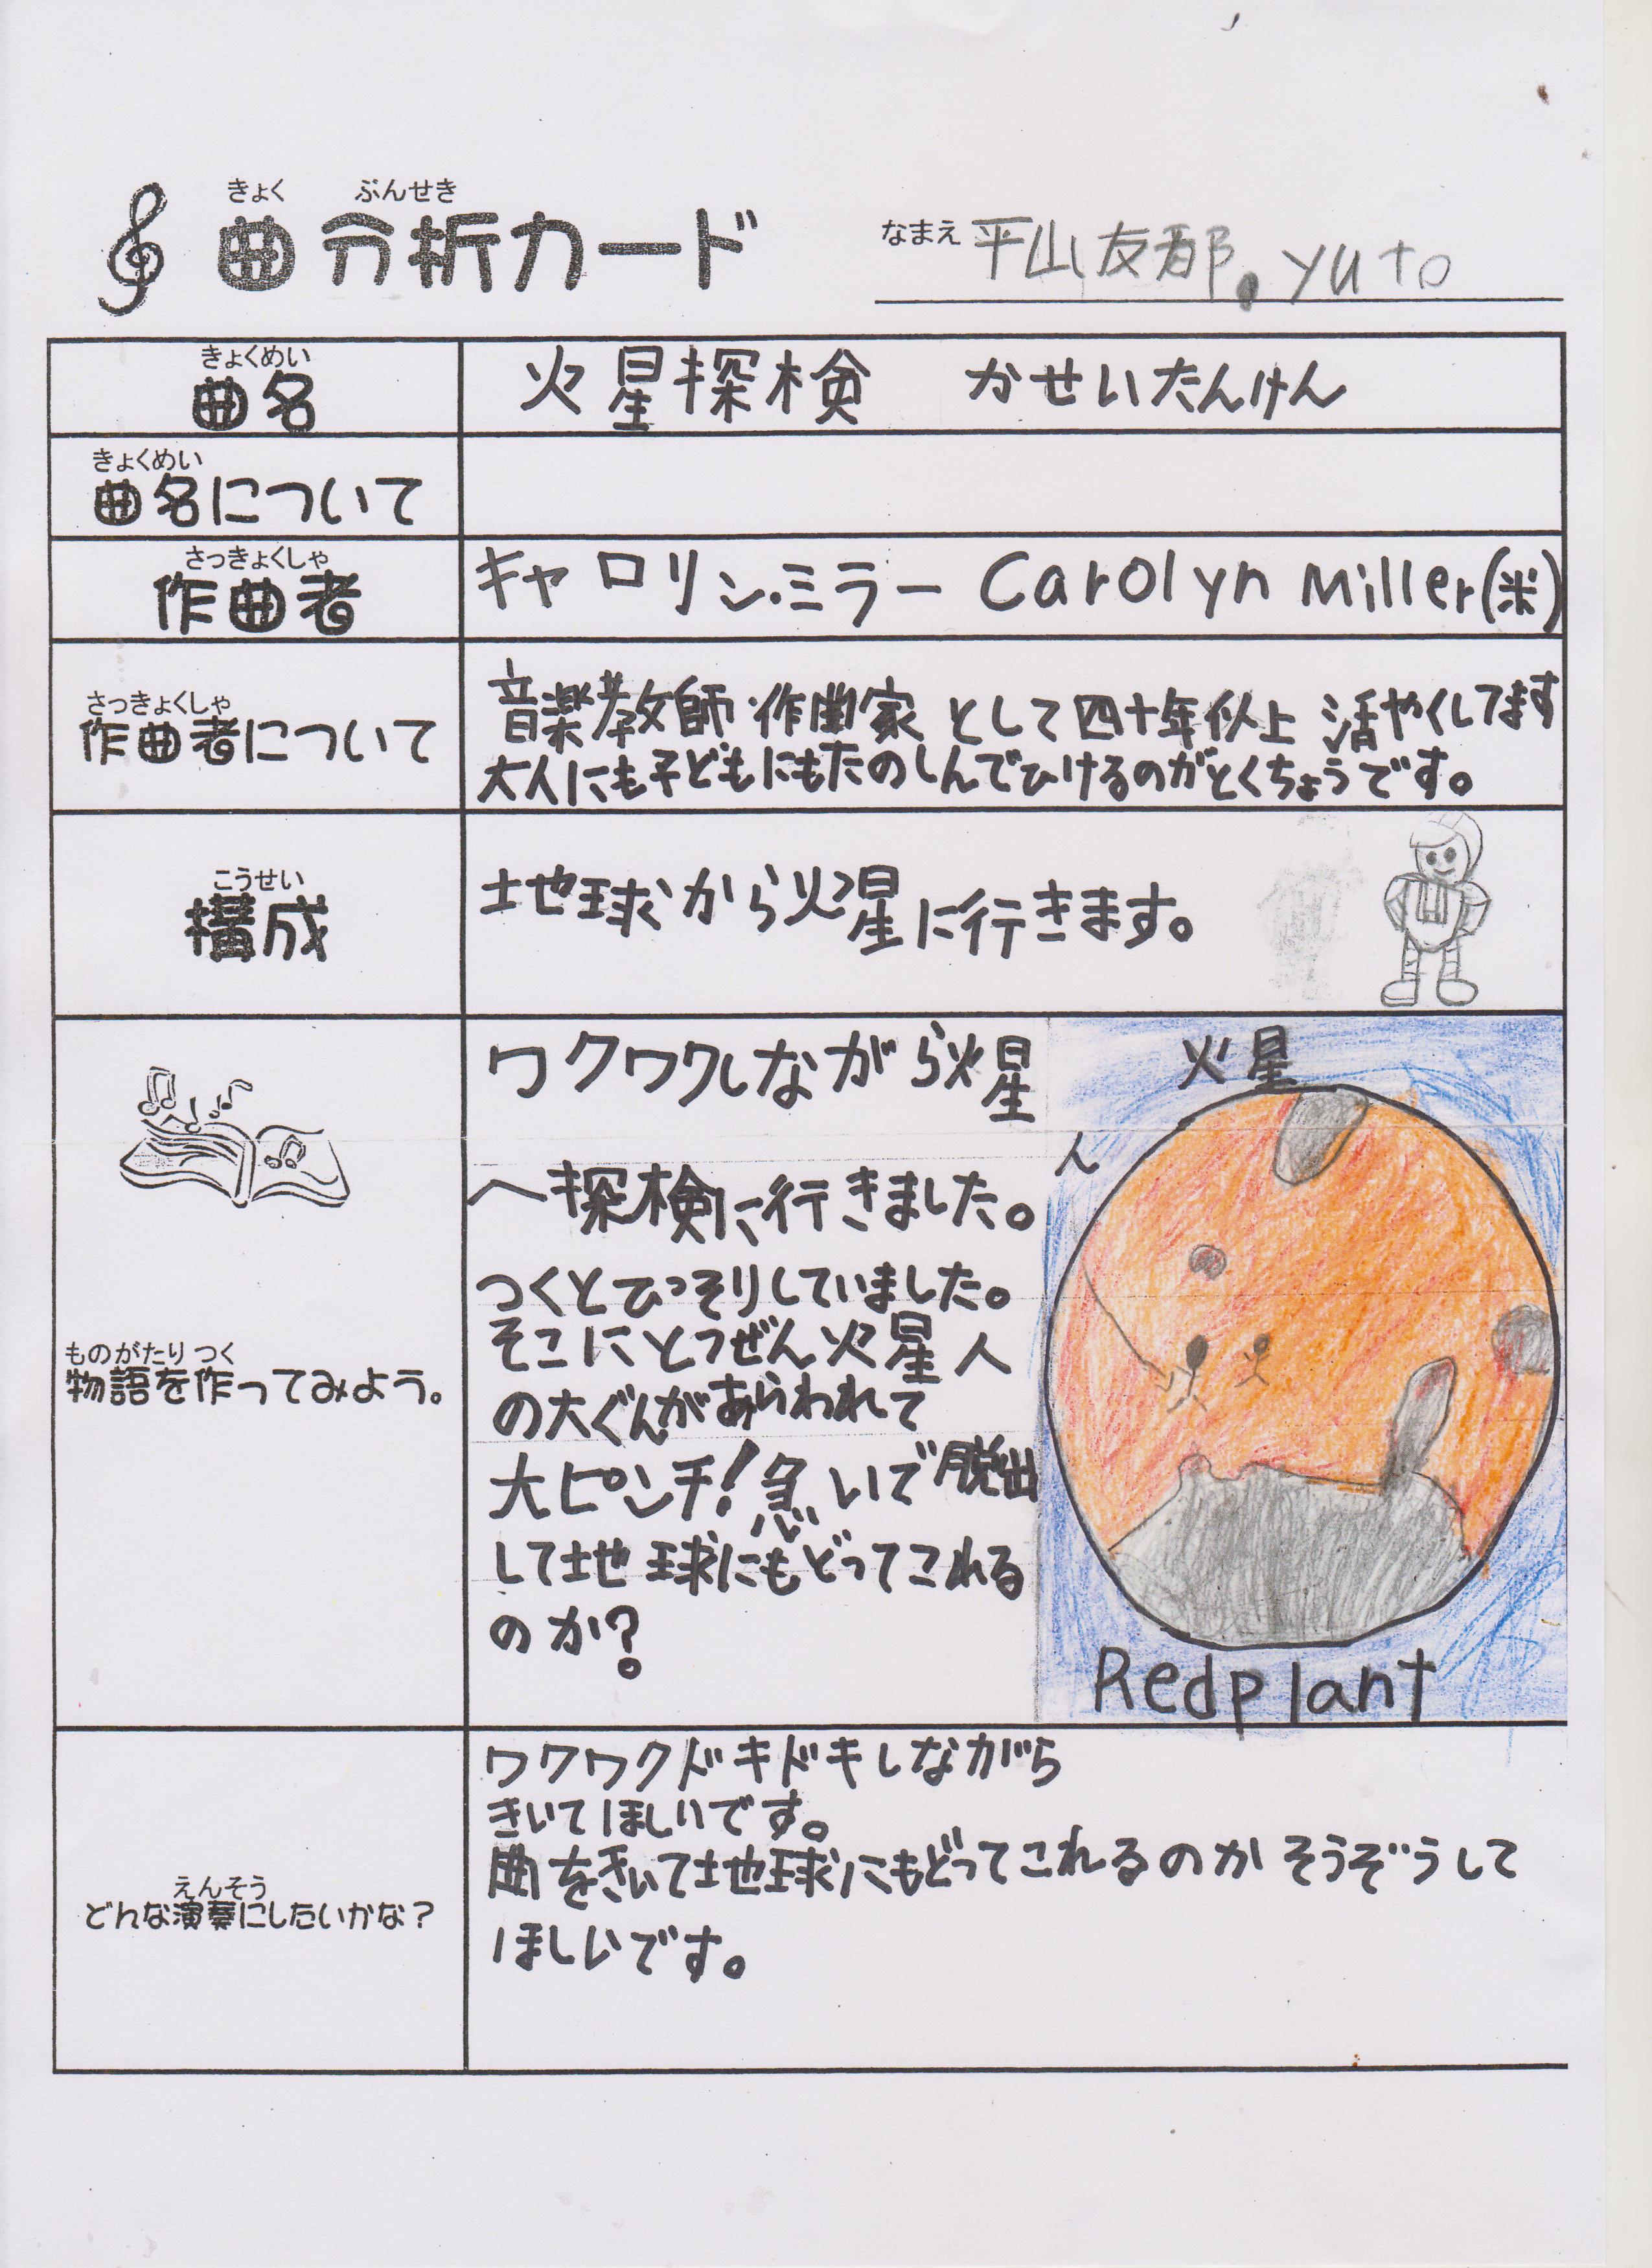 きょく ぶんせき
曲分析カード
なまえ 平山友都.yuto
きょくめい
曲名
火星探検 かせいたんけん
きょくめい
曲名について
さっきょくしゃ
作曲者
キャロリン・ミラー Carolyn Miller(米)
さっきょくしゃ
作曲者について
音楽教師・作曲家として四十年以上活やくしてます
大人にも子どもにもたのしんでひけるのがとくちょうです。
こうせい
構成
地球から火星に行きます。
ものがたり つく
物語を作ってみよう。
ワクワクしながら火星
へ探検に行きました。
つくとひっそりしていました。
そこにとつぜん火星人
の大ぐんがあらわれて
大ピンチ!急いで脱出
して地球にもどってこれる
のか?
火星
Redplant
えんそう
どんな演奏にしたいかな?
ワクワクドキドキしながら
きいてほしいです。
曲をきいて地球にもどってこれるのかそうぞうして
ほしいです。